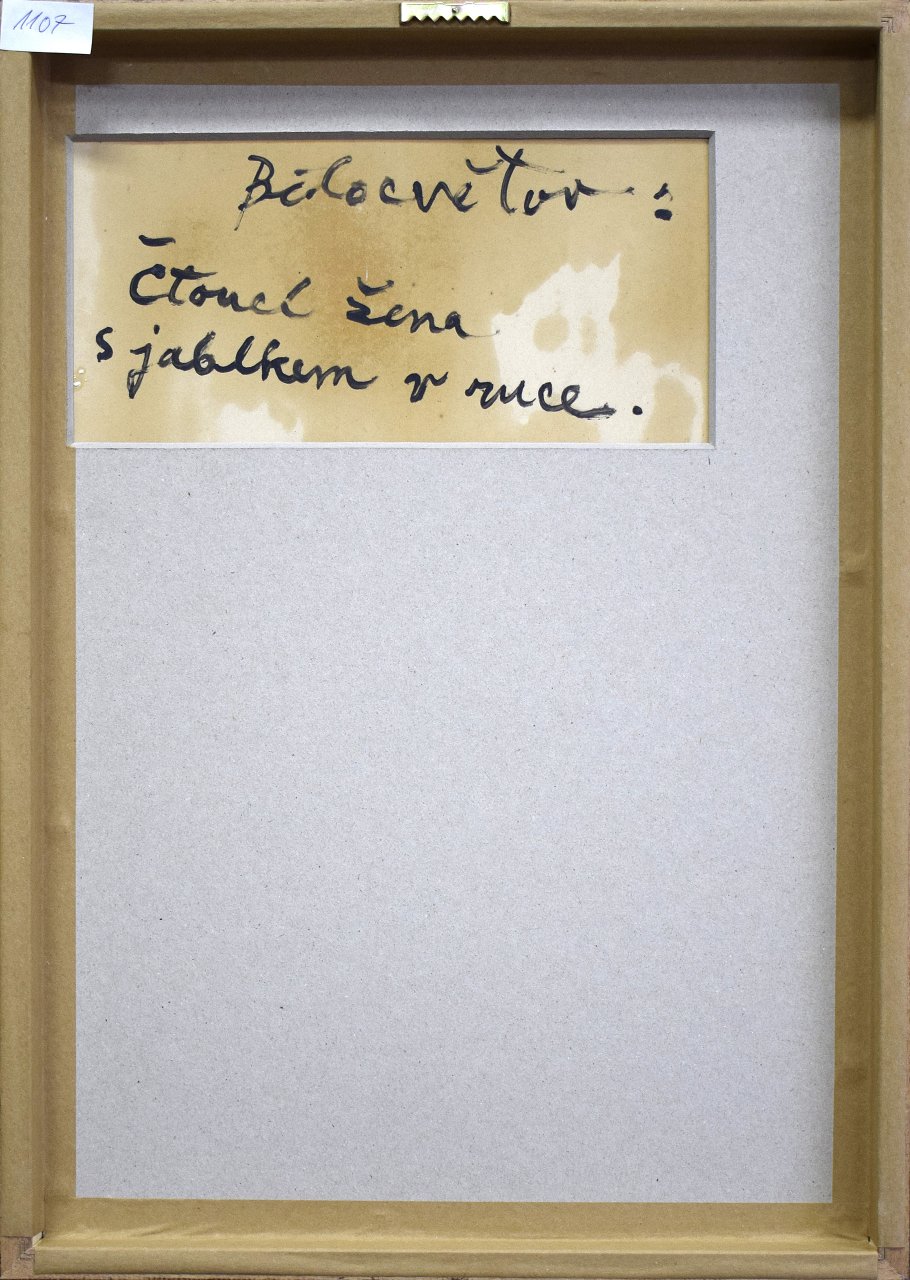 1107
Bělocvětov :
Čtoucí žena
s jablkem v ruce.